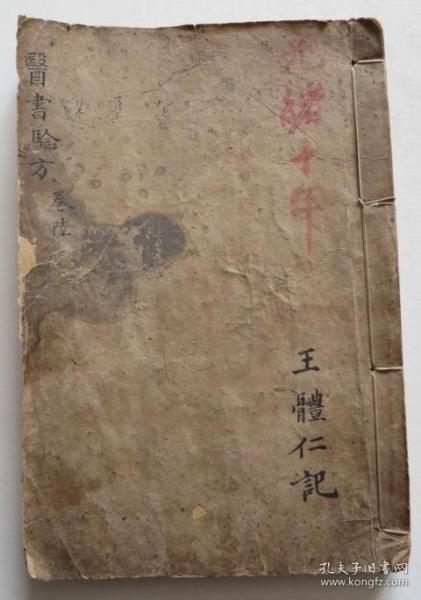 光緒十年
醫書驗方
卷陸
王體仁記
孔夫子旧书网
www.kongfz.com